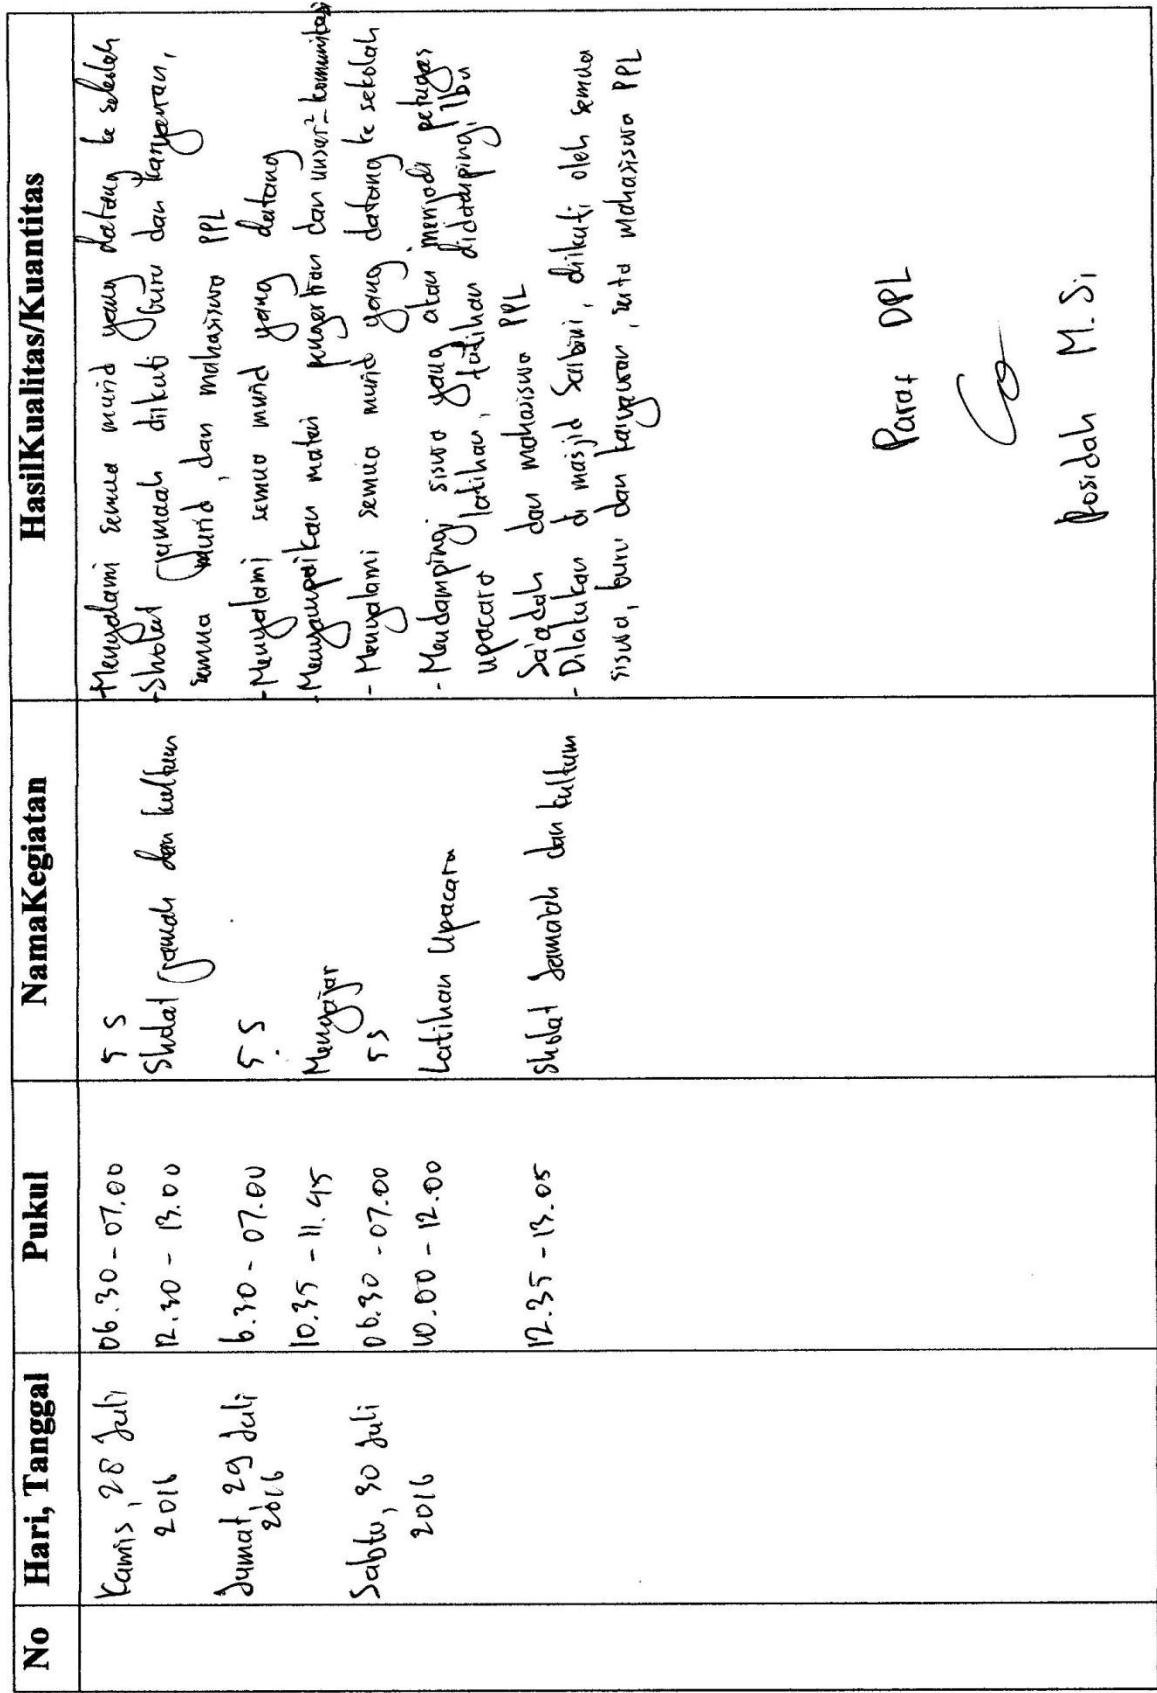 No Hari, Tanggal Pukul NamaKegiatan HasilKualitas/Kuantitas
Kamis, 28 Juli 06.30 - 07.00 5 S - Menyalami semua murid yang datang ke sekolah
2016 12.30 - 13.00 Sholat jamaah dan kultum - Sholat jamaah diikuti Guru dan karyawan,
semua murid, dan mahasiswa PPL
Jumat, 29 Juli 6.30 - 07.00 5 S - Menyalami semua murid yang datang
2016 10.35 - 11.45 Mengajar - Menyampaikan materi pengertian dan unsur² komunikasi
Sabtu, 30 Juli 06.30 - 07.00 5 S - Menyalami semua murid yang datang ke sekolah
2016 10.00 - 12.00 Latihan Upacara - Mendampingi siswa yang akan menjadi petugas
upacara latihan, latihan didampingi Ibu
Sa'adah dan mahasiswa PPL
12.35 - 13.05 Sholat Jamaah dan kultum - Dilakukan di masjid Saibini, diikuti oleh semua
siswa, guru dan karyawan, serta mahasiswa PPL
Paraf DPL
Rosidah M.Si